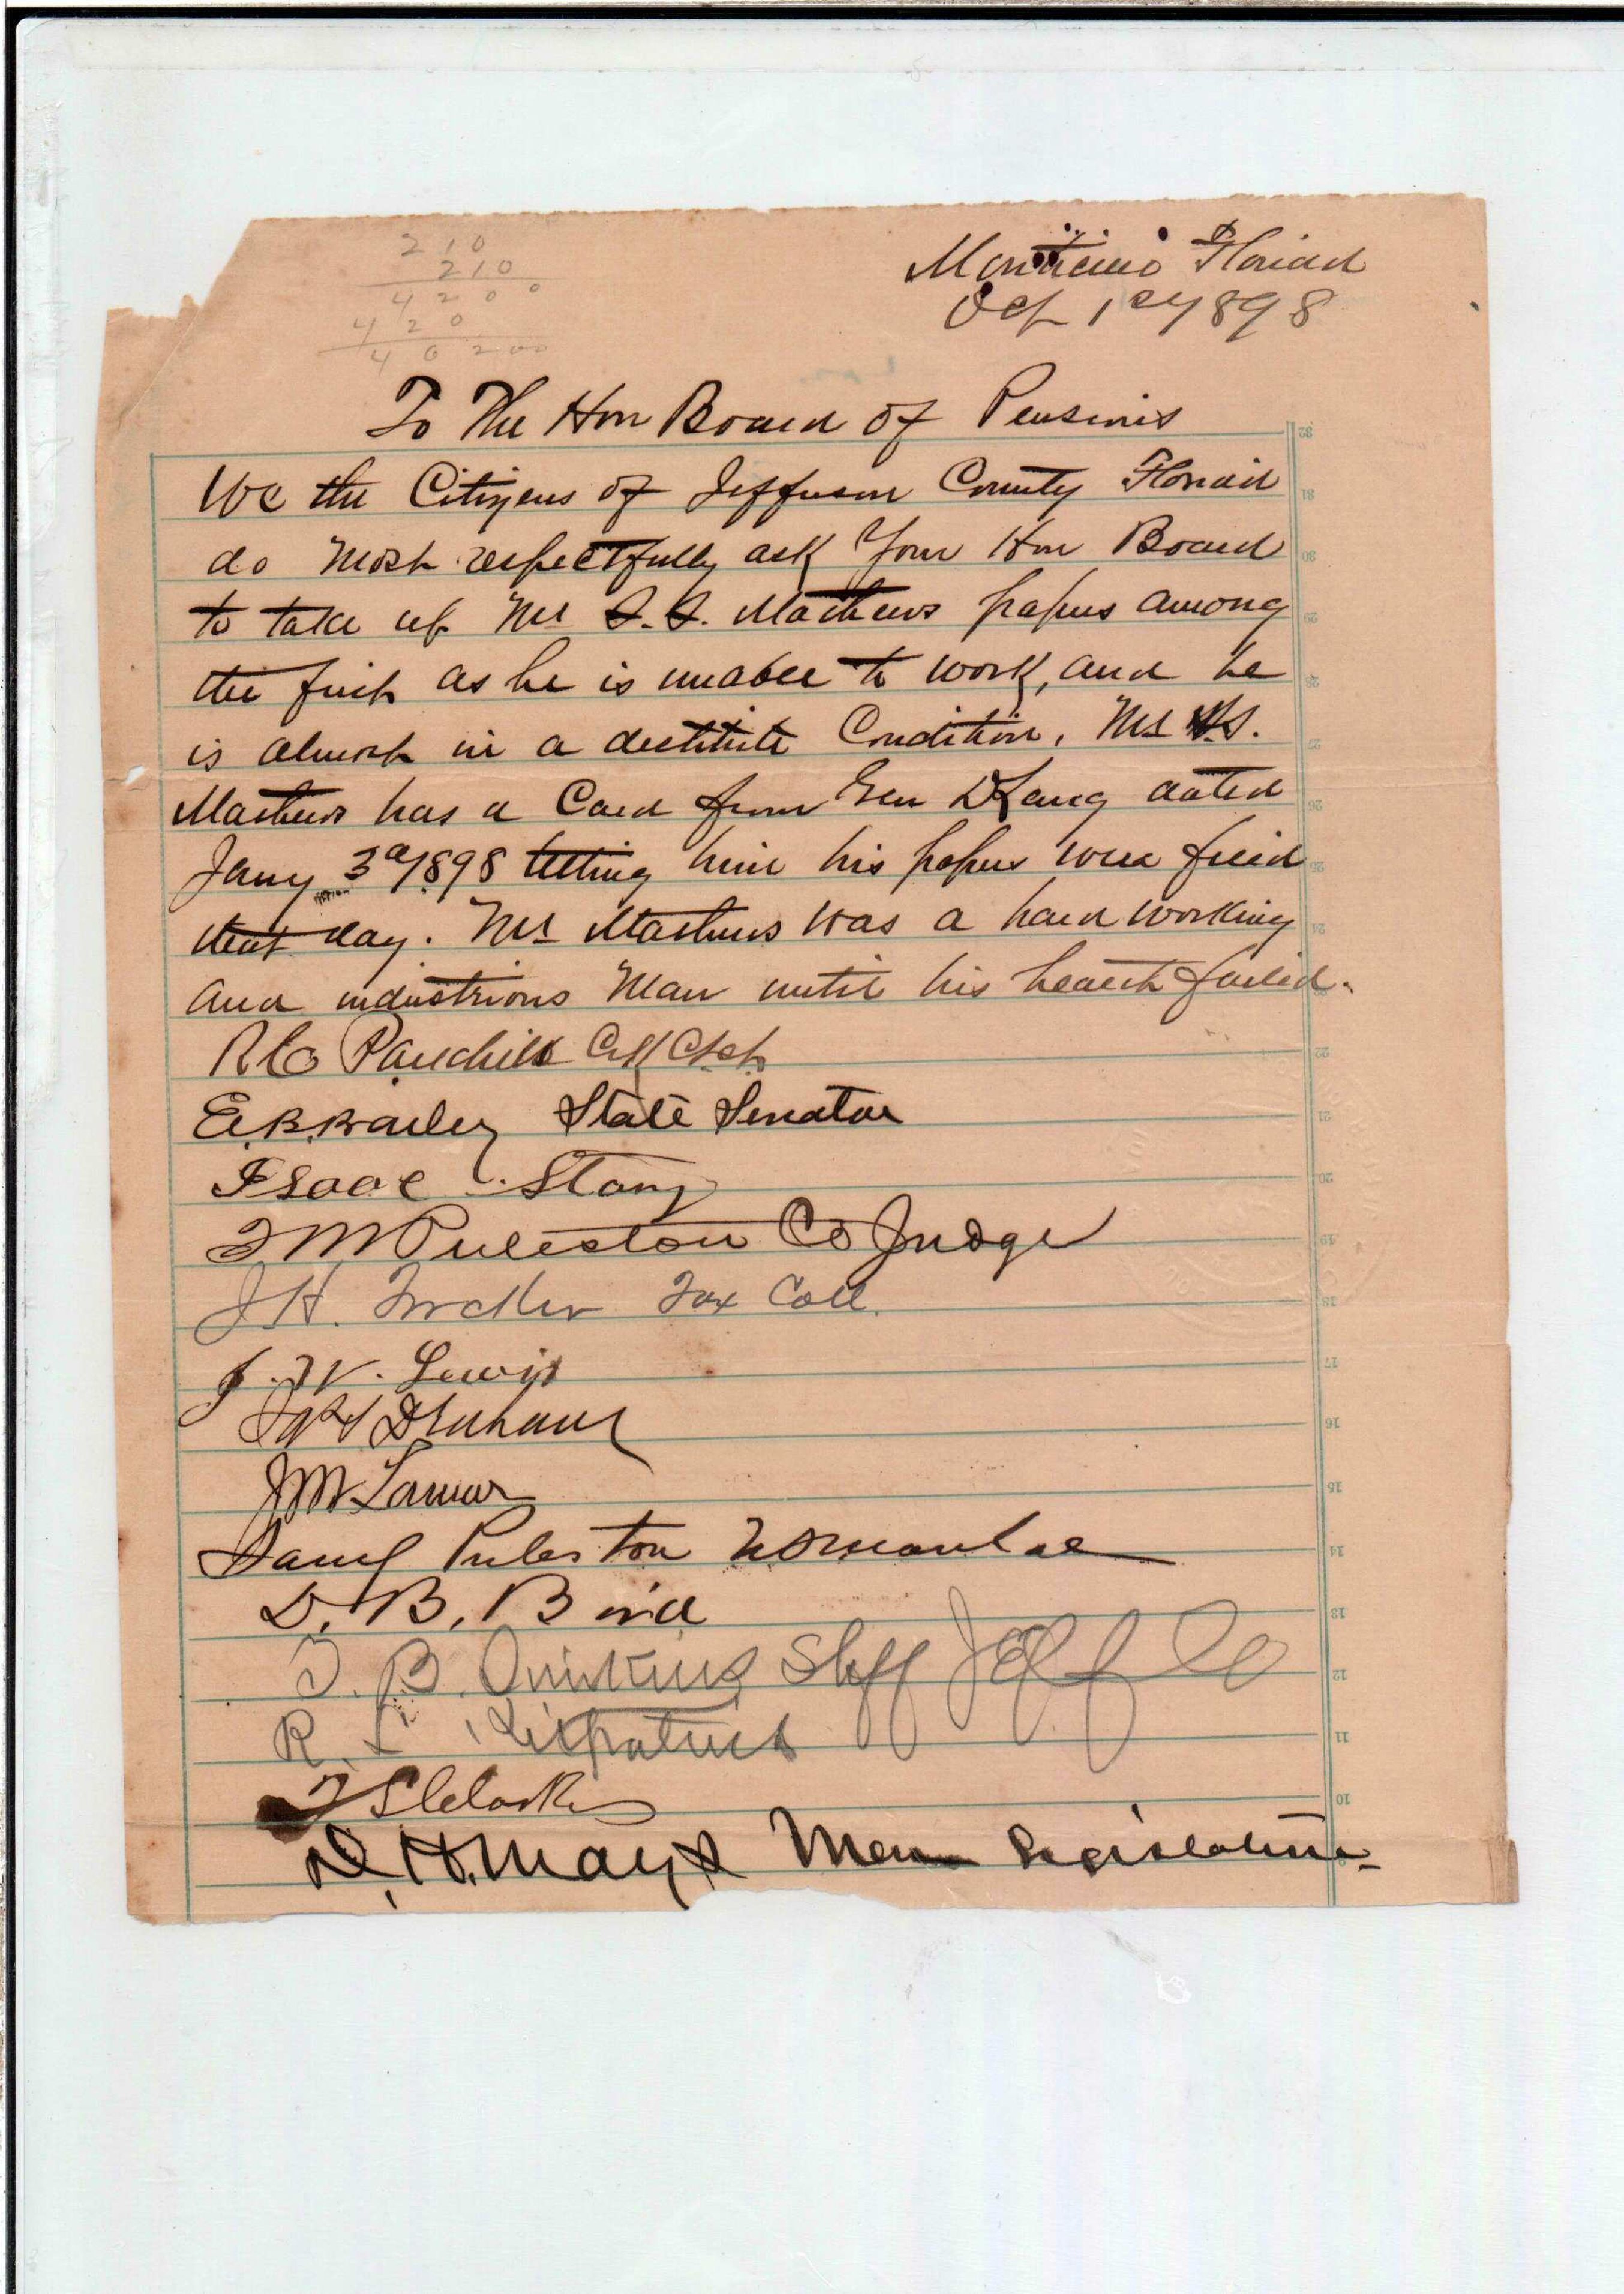 210
210
4200
420
40200
Monticello Florida
Oct 1st 1898
To The Hon Board of Pensions
We the Citizens of Jefferson County Florida
do most respectfully ask Your Hon Board
to take up Mr S.S. Mathews papers among
the first as he is unable to work, and he
is almost in a destitute Condition. Mr S.S.
Mathews has a Card from Gen D Lang dated
Jany 3d 1898 telling him his papers were filed
that day. Mr Mathews was a hard working
and industrious Man until his health failed.
Clk Ct
E.B. Bailey State Senator
Isaac
T M Puleston Co Judge
J.H. Tax Coll.
J. W. Lewis
Denham
J M Lamar
Saml Puleston
D. B. Bird
T. B. Simkins Shff Jeff Co
R. L. Kilpatrick
T S Clarke
D. H. Mays Mem Legislature
32
31
30
29
28
27
26
25
24
22
21
20
19
18
17
16
15
14
13
12
11
10